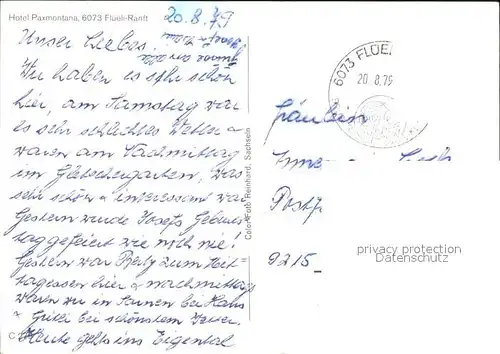 Hotel Paxmontana, 6073 Flüeli-Ranft
20.8.79
Unser Liebes!
Wir haben es sehr schön
hier, am Samstag war
es sehr schlechtes Wetter &
waren am Nachmittag
im Gletschergarten, was
sehr schön & interessant war
Gestern wurde Josefs Geburts
tag gefeiert wie noch nie!
Gestern war Betz zum Mit-
tagessen hier & nachmittags
waren wir in Sarnen bei Hans
& Güsti bei schönstem Wetter.
Heute gehts ins Eigental
Color-Foto Reinhard, Sachseln
6073 FLÜEL
20.8.79
Fräulein
Postf
9215
privacy protection
Datenschutz